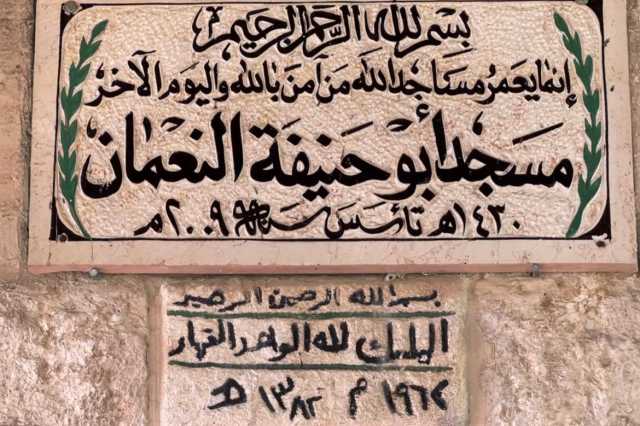 بسم الله الرحمن الرحيم
إنما يعمر مساجد الله من آمن بالله واليوم الآخر
مسجد أبو حنيفة النعمان
١٤٣٠هـ تأسس سنة ٢٠٠٩م
بسم الله الرحمن الرحيم
الملك لله الواحد القهار
١٩٦٢ م ١٣٨٢ هـ